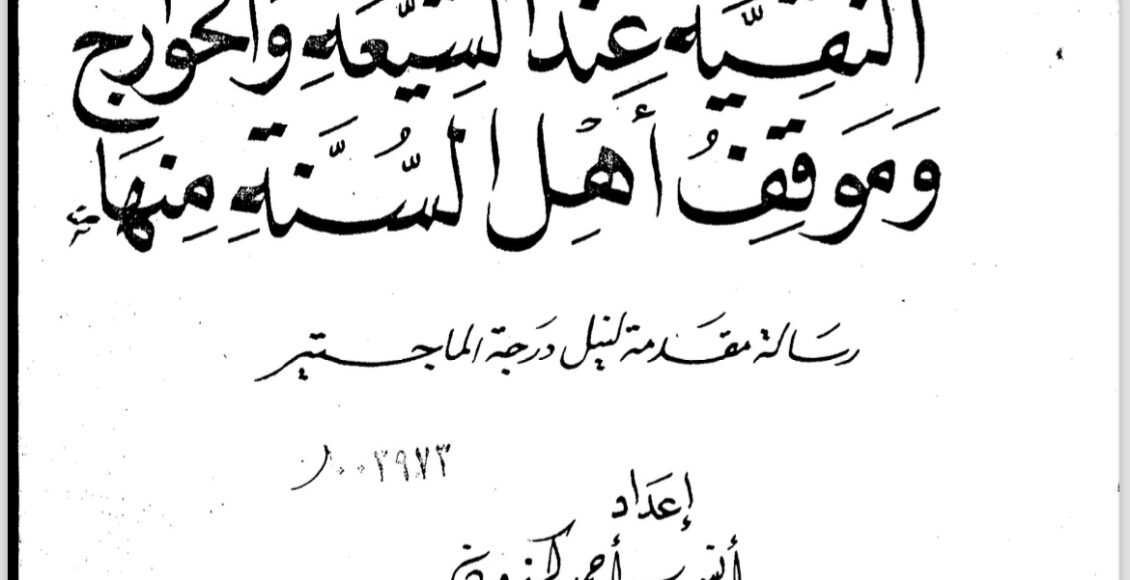 التَّقِيَّة عِندَ الشِّيعَةِ وَالخَوَارِج
وَمَوَقِفُ أَهْلِ السُّنَّةِ مِنهَا
رسَالة مقَدمة لنيل درَجة الماجستير
٠٠٢٩٧٣
إعَداد
أنس أحمد كرزون